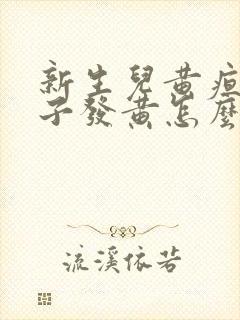 新生兒黃疸
子發黃怎麼
流溪依若